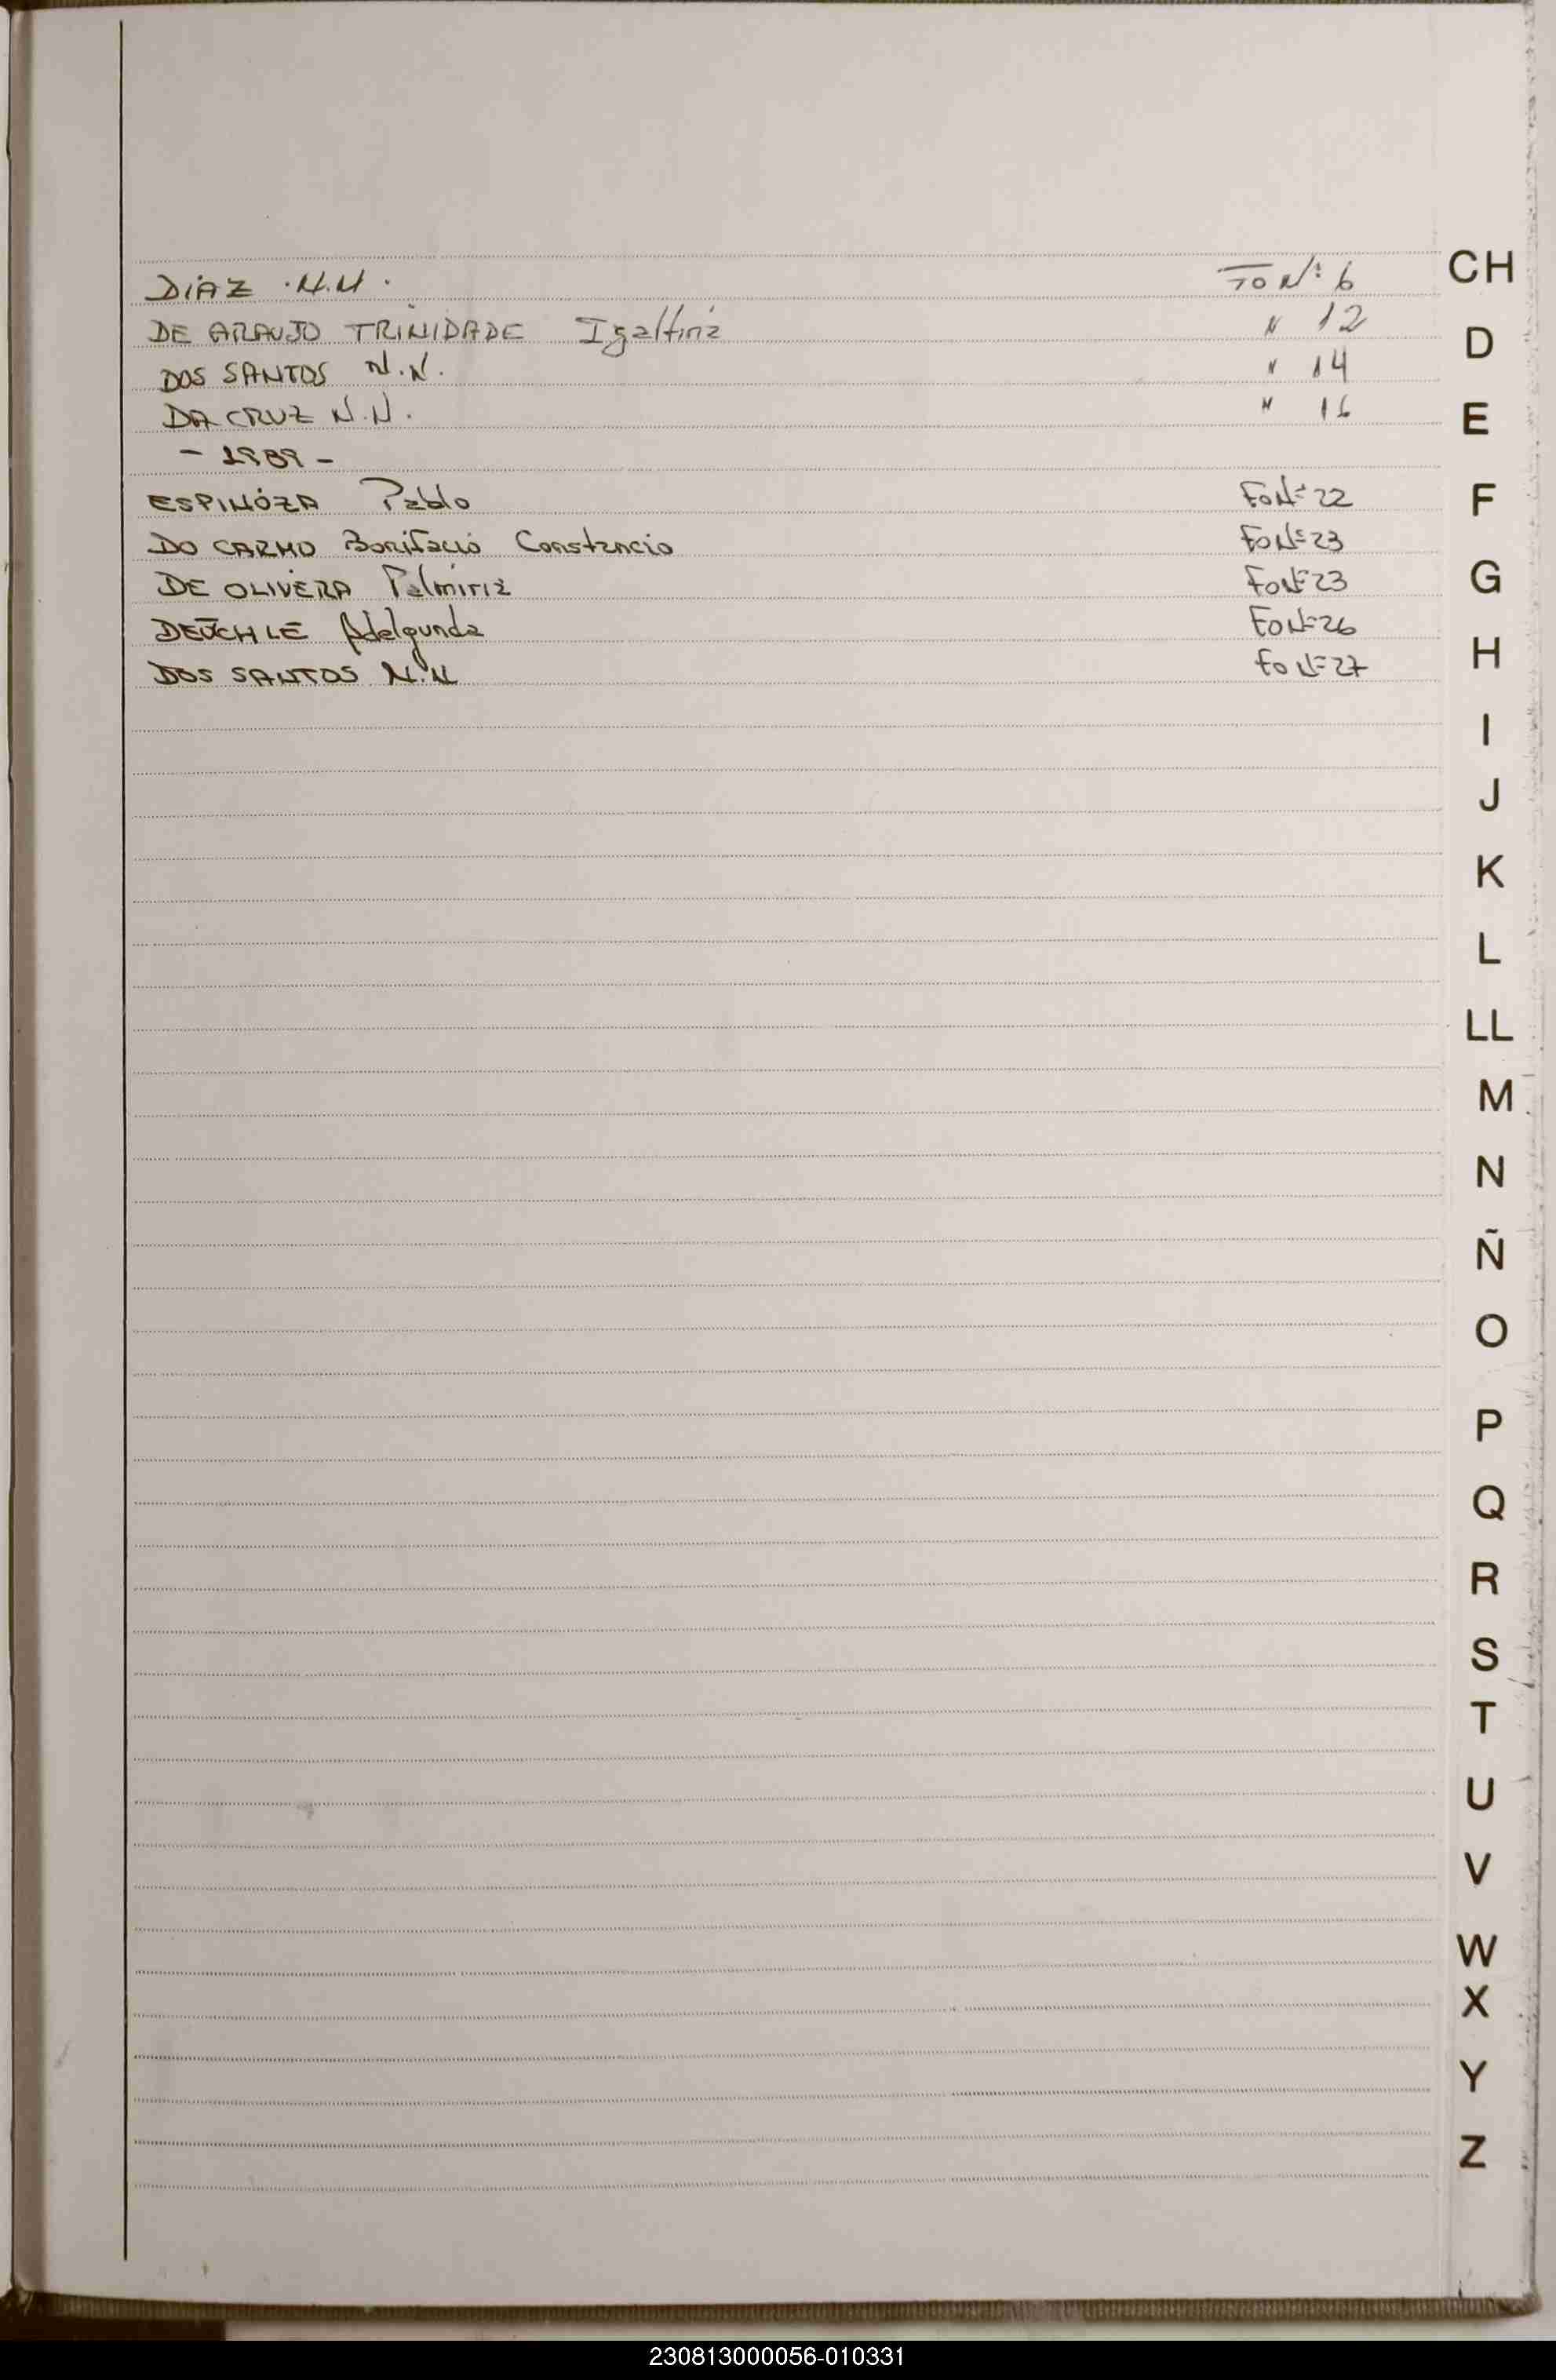 DIAZ N.N. Fo Nº 6
DE ARAUJO TRINIDADE Igaltiria " 12
DOS SANTOS N.N. " 14
DA CRUZ N.N. " 16
- 1989 -
ESPINÓZA Pablo Fo Nº 22
DO CARMO Bonifacio Constancio Fo Nº 23
DE OLIVERA Palmiria Fo Nº 23
DEUCHLE Adelgunda Fo Nº 26
DOS SANTOS N.N Fo Nº 27
CH
D
E
F
G
H
I
J
K
L
LL
M
N
Ñ
O
P
Q
R
S
T
U
V
W
X
Y
Z
230813000056-010331